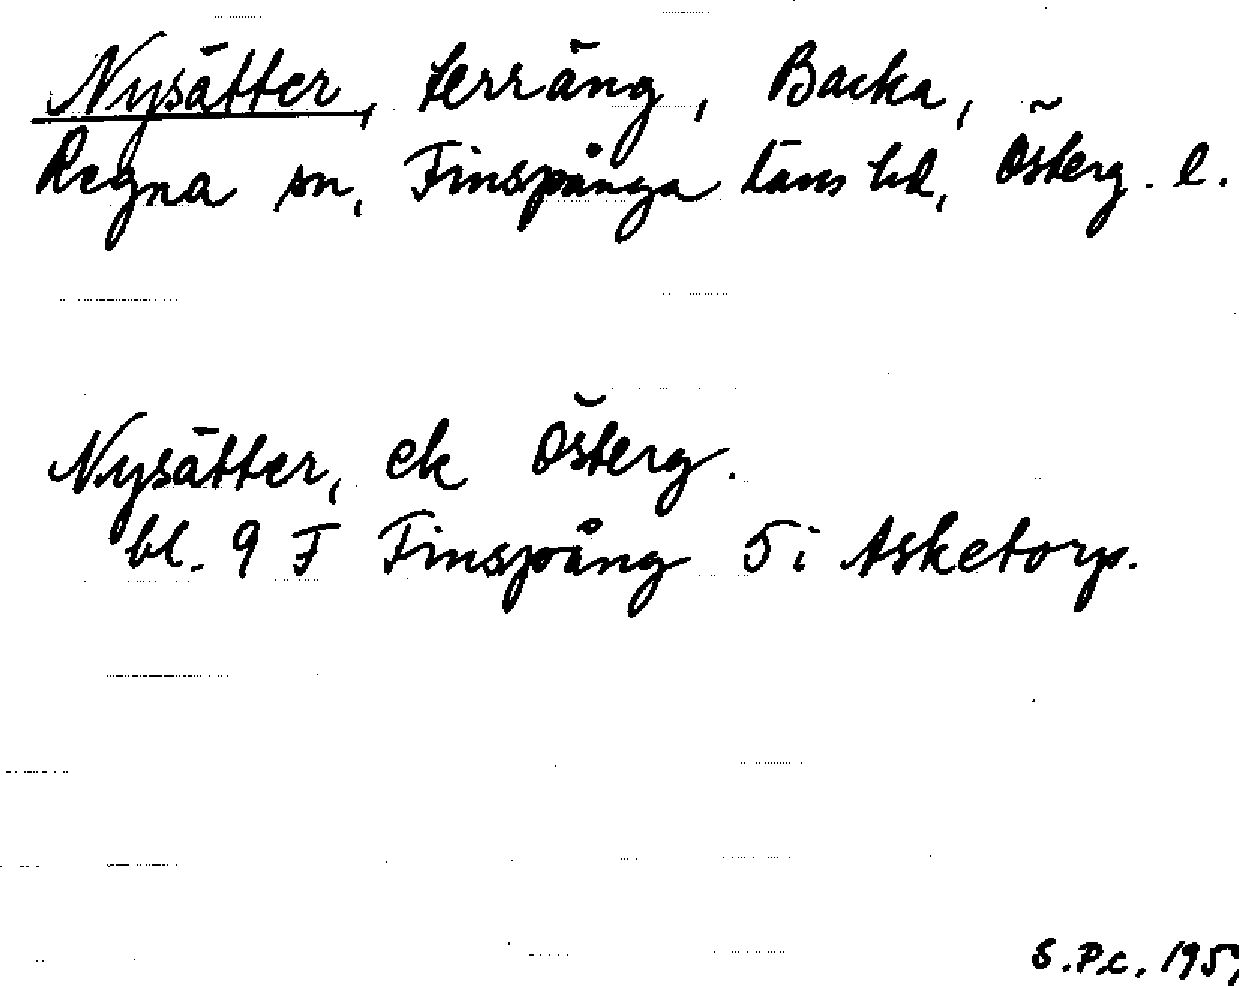 Nysätter, terräng, Backa,
Regna sn, Finspånga läns hd, Österg. l.
Nysätter, ek Österg.
bl. 9 F Finspång 5 i Asketorp.
S.Pc. 195